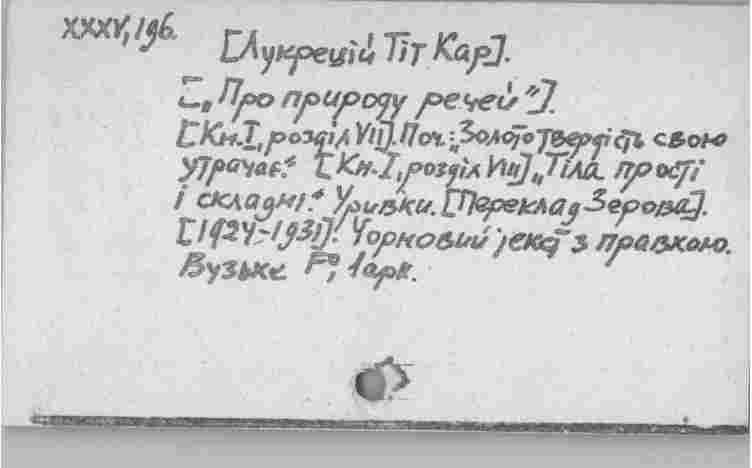 XXXV, 196.
[Лукрецій Тіт Кар].
[„Про природу речей"].
[Кн. I, розділ VII]. Поч.: „Золото твердість свою
утрачає." [Кн. I, розділ VIII] „Тіла прості
і складні." Уривки. [Переклад Зерова].
[1924-1931]. Чорновий текст з правкою.
Вузьке F°, 1 арк.